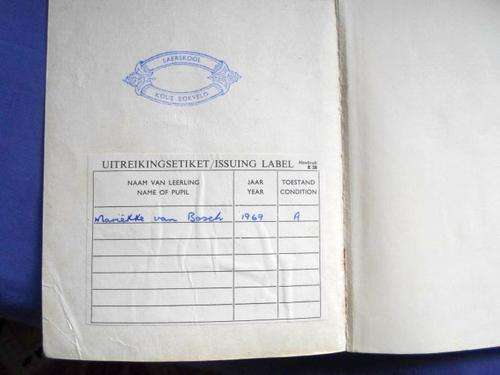 LAERSKOOL
KOUE BOKVELD
UITREIKINGSETIKET/ISSUING LABEL
NAAM VAN LEERLING JAAR TOESTAND
NAME OF PUPIL YEAR CONDITION
Mariëkke van Bosch 1969 A